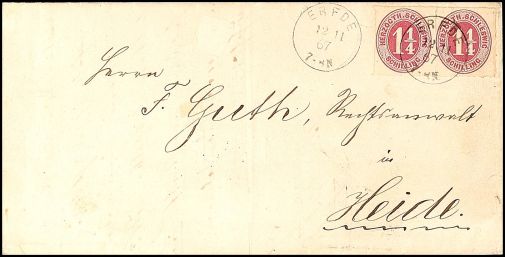 ERFDE
12 11
67
7-8N
HERZOGTH. SCHLESWIG
1 1/4
SCHILLING
HERZOGTH. SCHLESWIG
1 1/4
SCHILLING
ERFDE
12 11
67
7-8N
Herrn
F. Guth, Rechtsanwalt
in
Heide.